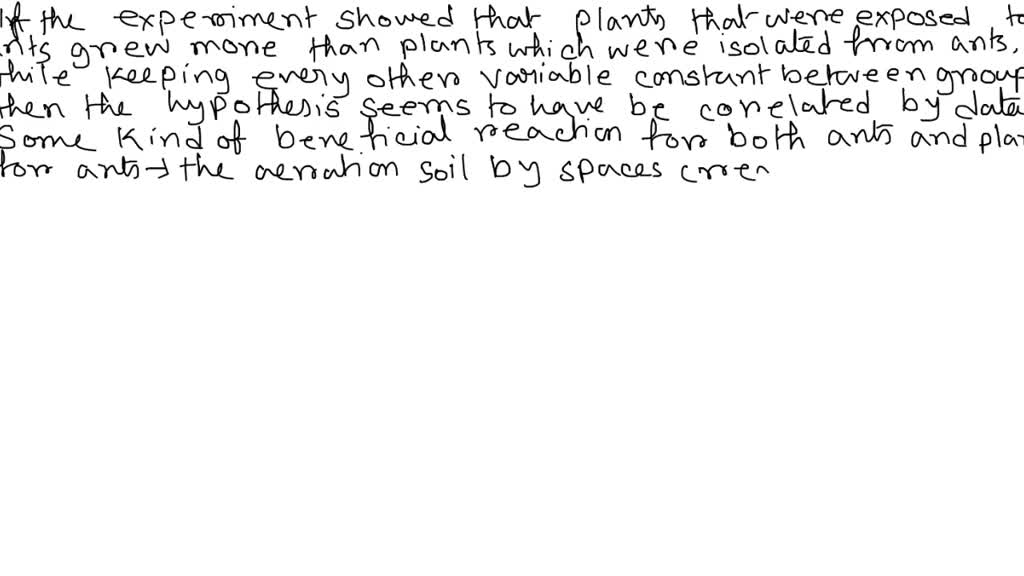 If the experiment showed that plants that were exposed to
nts grew more than plants which were isolated from ants,
hile keeping every other variable constant between group
hen the hypothesis seems to have be corelated by data
Some kind of beneficial reaction for both ants and plan
for ants → the aeration soil by spaces crea